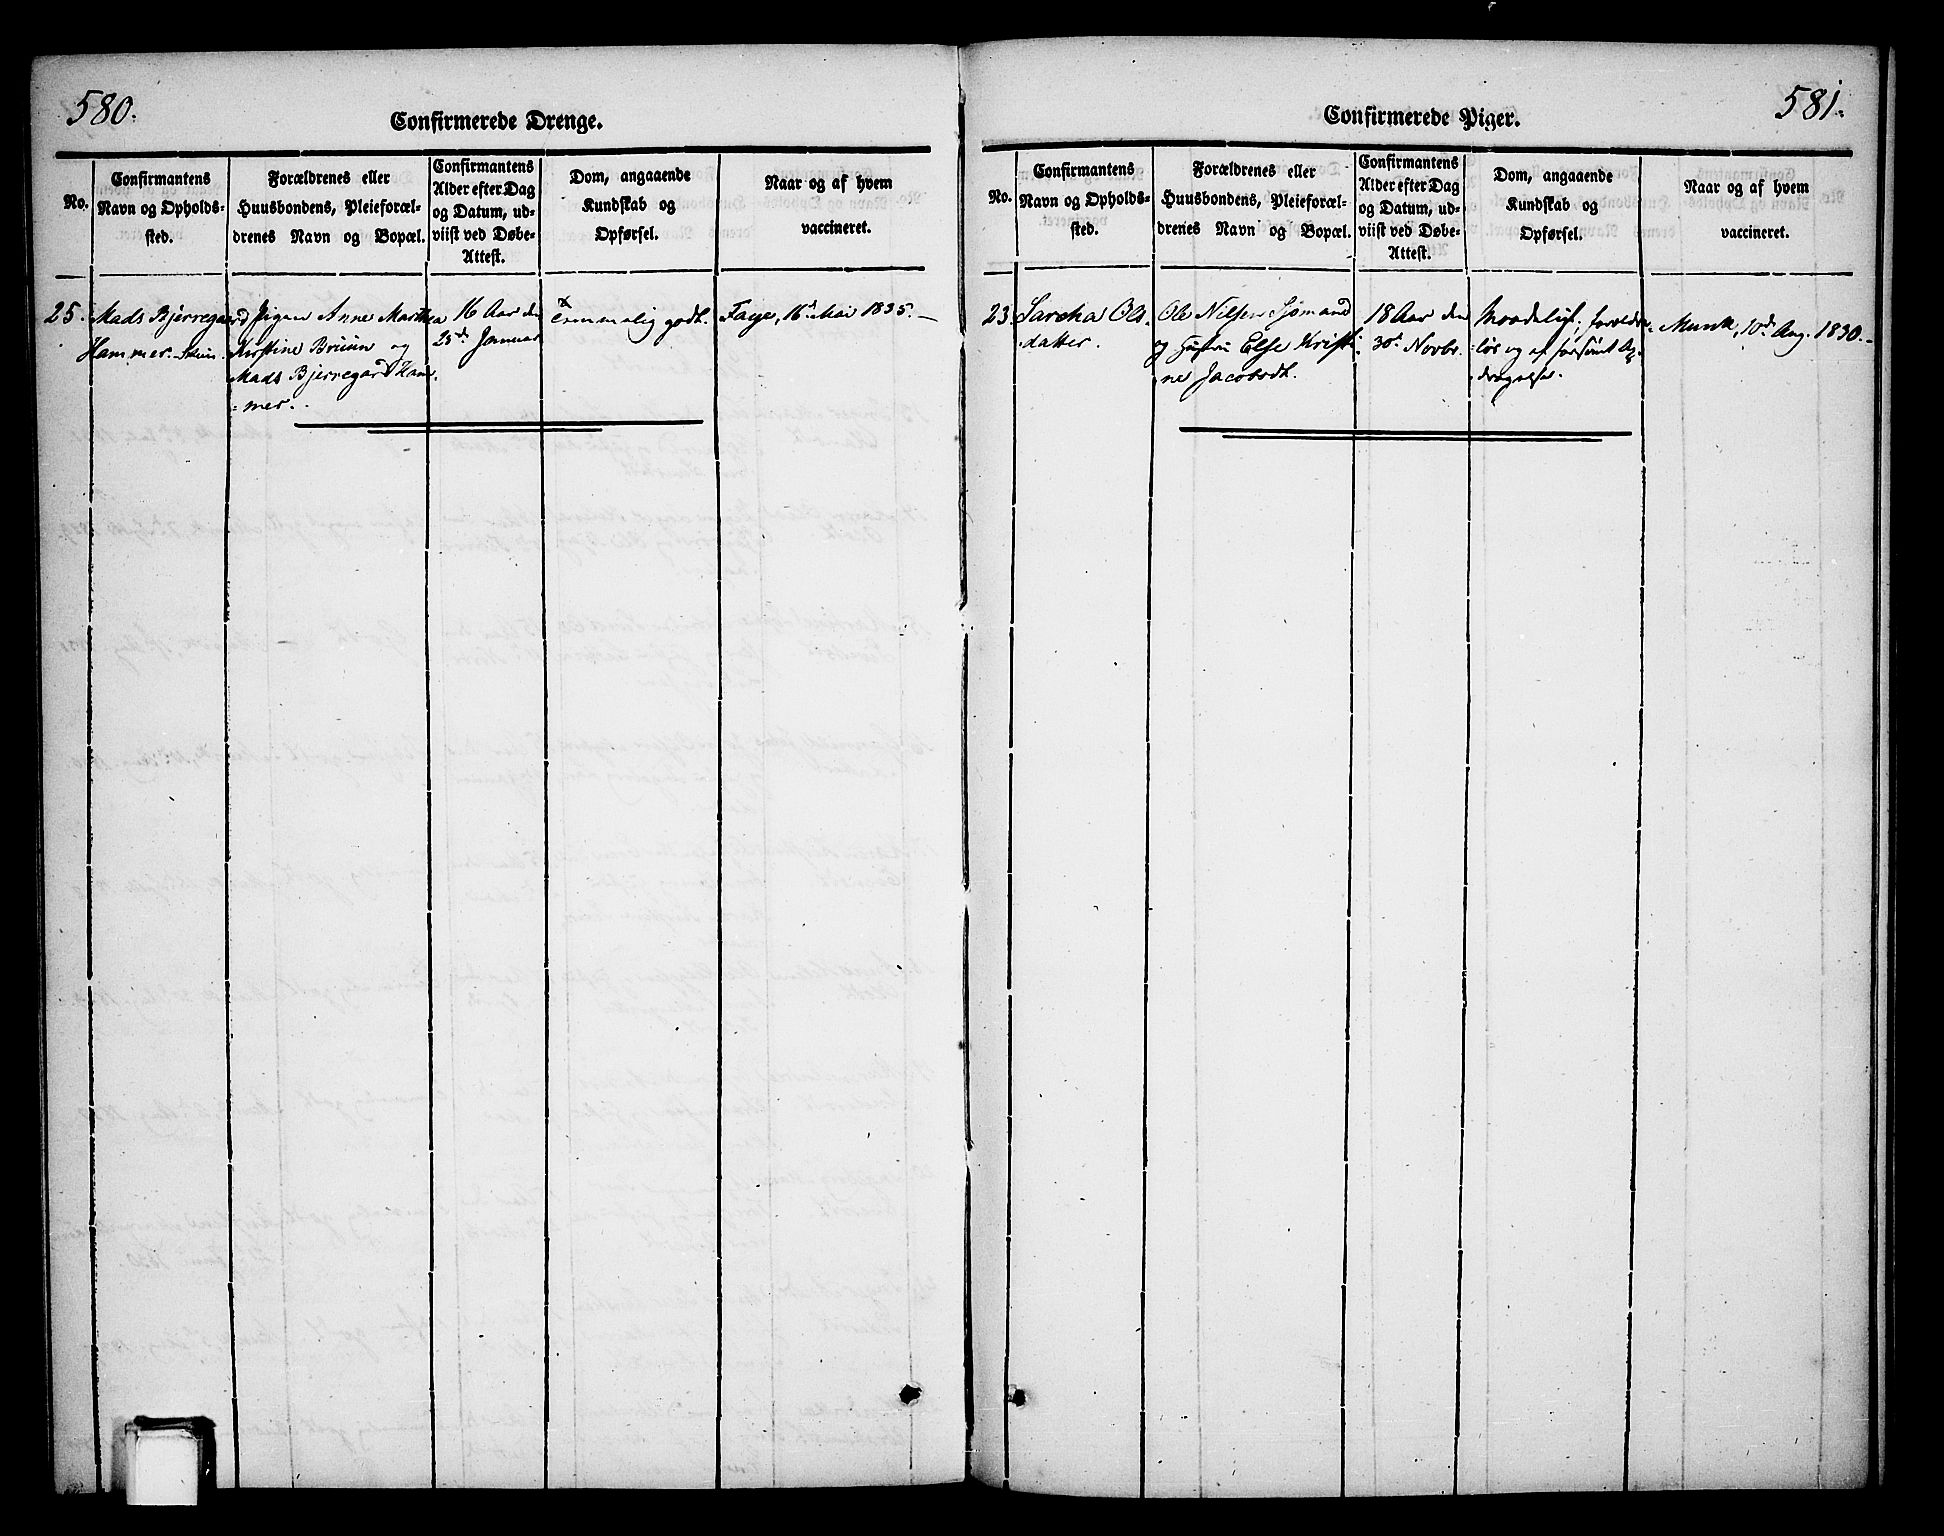 580.
Confirmerede Drenge.
No.
Confirmantens
Navn og Opholds-
sted.
Forældrenes eller
Huusbondens, Pleieforæl-
drenes Navn og Bopæl.
Confirmantens
Alder efter Dag
og Datum, ud-
viist ved Døbe-
Attest.
Dom, angaaende
Kundskab og
Opførsel.
Naar og af hvem
vaccineret.
25.
Mads Bjerregaard
Hammer
Pigen Anne Marthea
Kirstine Bruun og
Mads Bjerregard Ham-
mer.
16 Aar den
25d Januar
Temmelig godt.
Faye, 16d Mai 1835.
581.
Confirmerede Piger.
No.
Confirmantens
Navn og Opholds-
sted.
Forældrenes eller
Huusbondens, Pleieforæl-
drenes Navn og Bopæl.
Confirmantens
Alder efter Dag
og Datum, ud-
viist ved Døbe-
Attest.
Dom, angaaende
Kundskab og
Opførsel.
Naar og af hvem
vaccineret.
23.
Sareha Ols-
datter.
Ole Nilsen Sjømand
og Hustru Else Kristi-
ne Jacobsdt.
18 Aar den
30d Novbr.
Maadelig; forældre-
løs og af forsømt Op-
dragelse.
Munk, 10d Aug. 1830.